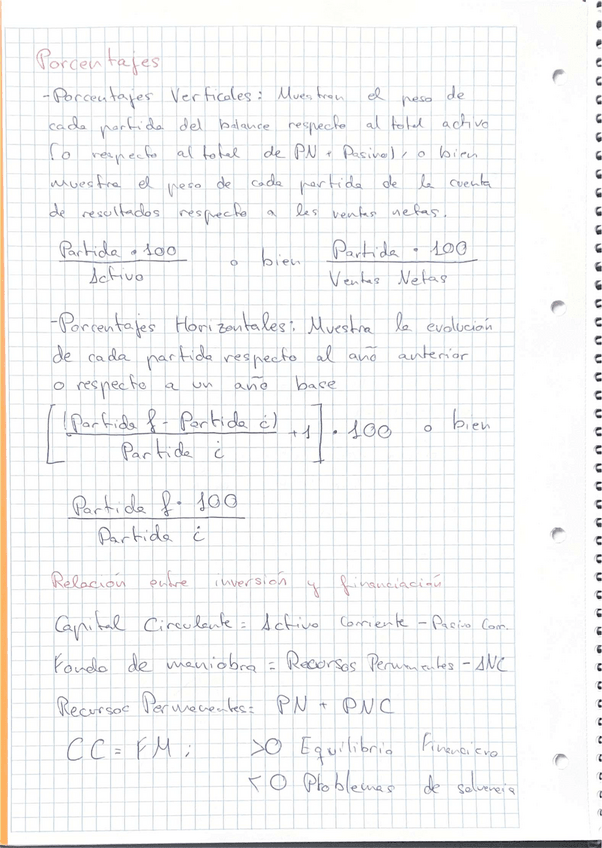 Porcentajes
-Porcentajes Verticales: Muestran el peso de
cada partida del balance respecto al total activo
(o respecto al total de PN + Pasivo), o bien
muestra el peso de cada partida de la cuenta
de resultados respecto a las ventas netas.
Partida · 100 o bien Partida · 100
Activo Ventas Netas
-Porcentajes Horizontales: Muestra la evolución
de cada partida respecto al año anterior
o respecto a un año base
[(Partida f - Partida i) +1] · 100 o bien
Partida i
Partida f · 100
Partida i
Relación entre inversión y financiación
Capital Circulante = Activo Corriente - Pasivo Corr.
Fondo de maniobra = Recursos Permanentes - ANC
Recursos Permanentes = PN + PNC
CC = FM; >0 Equilibrio Financiero
<0 Problemas de solvencia